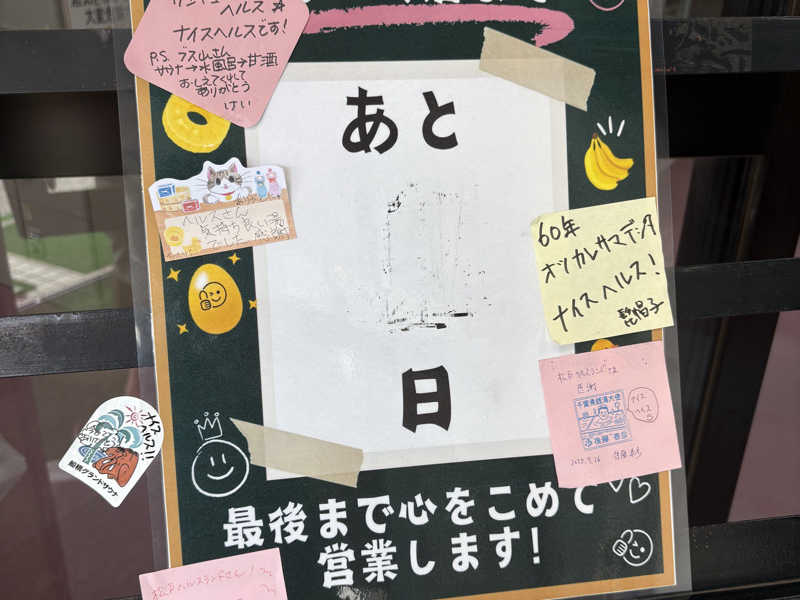 ヘルス
ナイスヘルスです!
P.S.
サウナ→水風呂→甘酒
おしえてくれて
ありがとう
けい
あと
ヘルスさん
気持ち良い湯
でした
60年
オツカレサマデシタ
ナイスヘルス!
日
千葉県銭湯大使
ナイス
ヘルス
ナイスサウナ!!
船橋グランドサウナ
最後まで心をこめて
営業します!
松戸ヘルスランドさん!